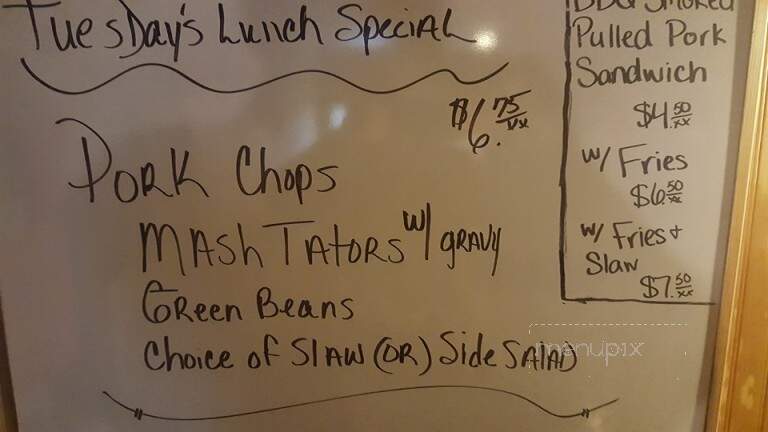 Tuesday's Lunch Special
$6.75/xx
Pork Chops
Mash Tators w/ gravy
Green Beans
Choice of Slaw (OR) Side Salad
BBQ Smoked
Pulled Pork
Sandwich
$4.50/xx
w/ Fries
$6.50/xx
w/ Fries +
Slaw
$7.50/xx
menupix